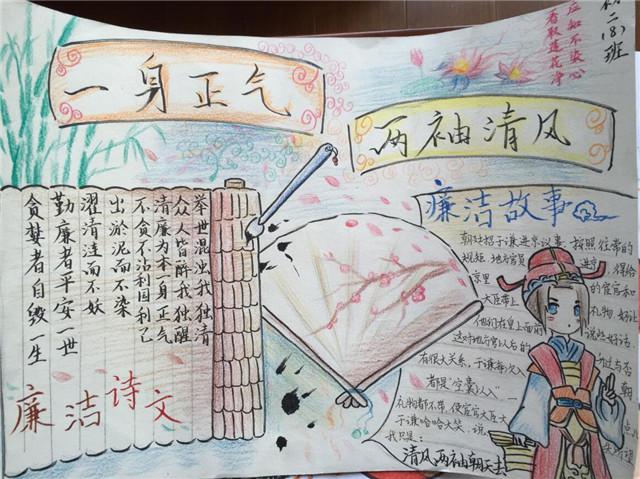 一身正气
两袖清风
看取莲花净
应知不染心
初二(8)班
举世混浊我独清
众人皆醉我独醒
清廉为本一身正气
不贪不沾利国利己
出淤泥而不染
濯清涟而不妖
勤廉者平安一世
贪婪者自毁一生
廉洁诗文
廉洁故事
朝廷招于谦进京议事 按照往常的
规矩,地方官员
进京,得给
京里
的宦官和
大臣带上
礼物,好让
他们在皇上面前
说些好话
这对地方官以后的
有很大关系,于谦每次入
都是"空囊入人"
礼物都不带,使宦官大臣大
于谦哈哈大笑,说
我只是:
清风两袖朝天去